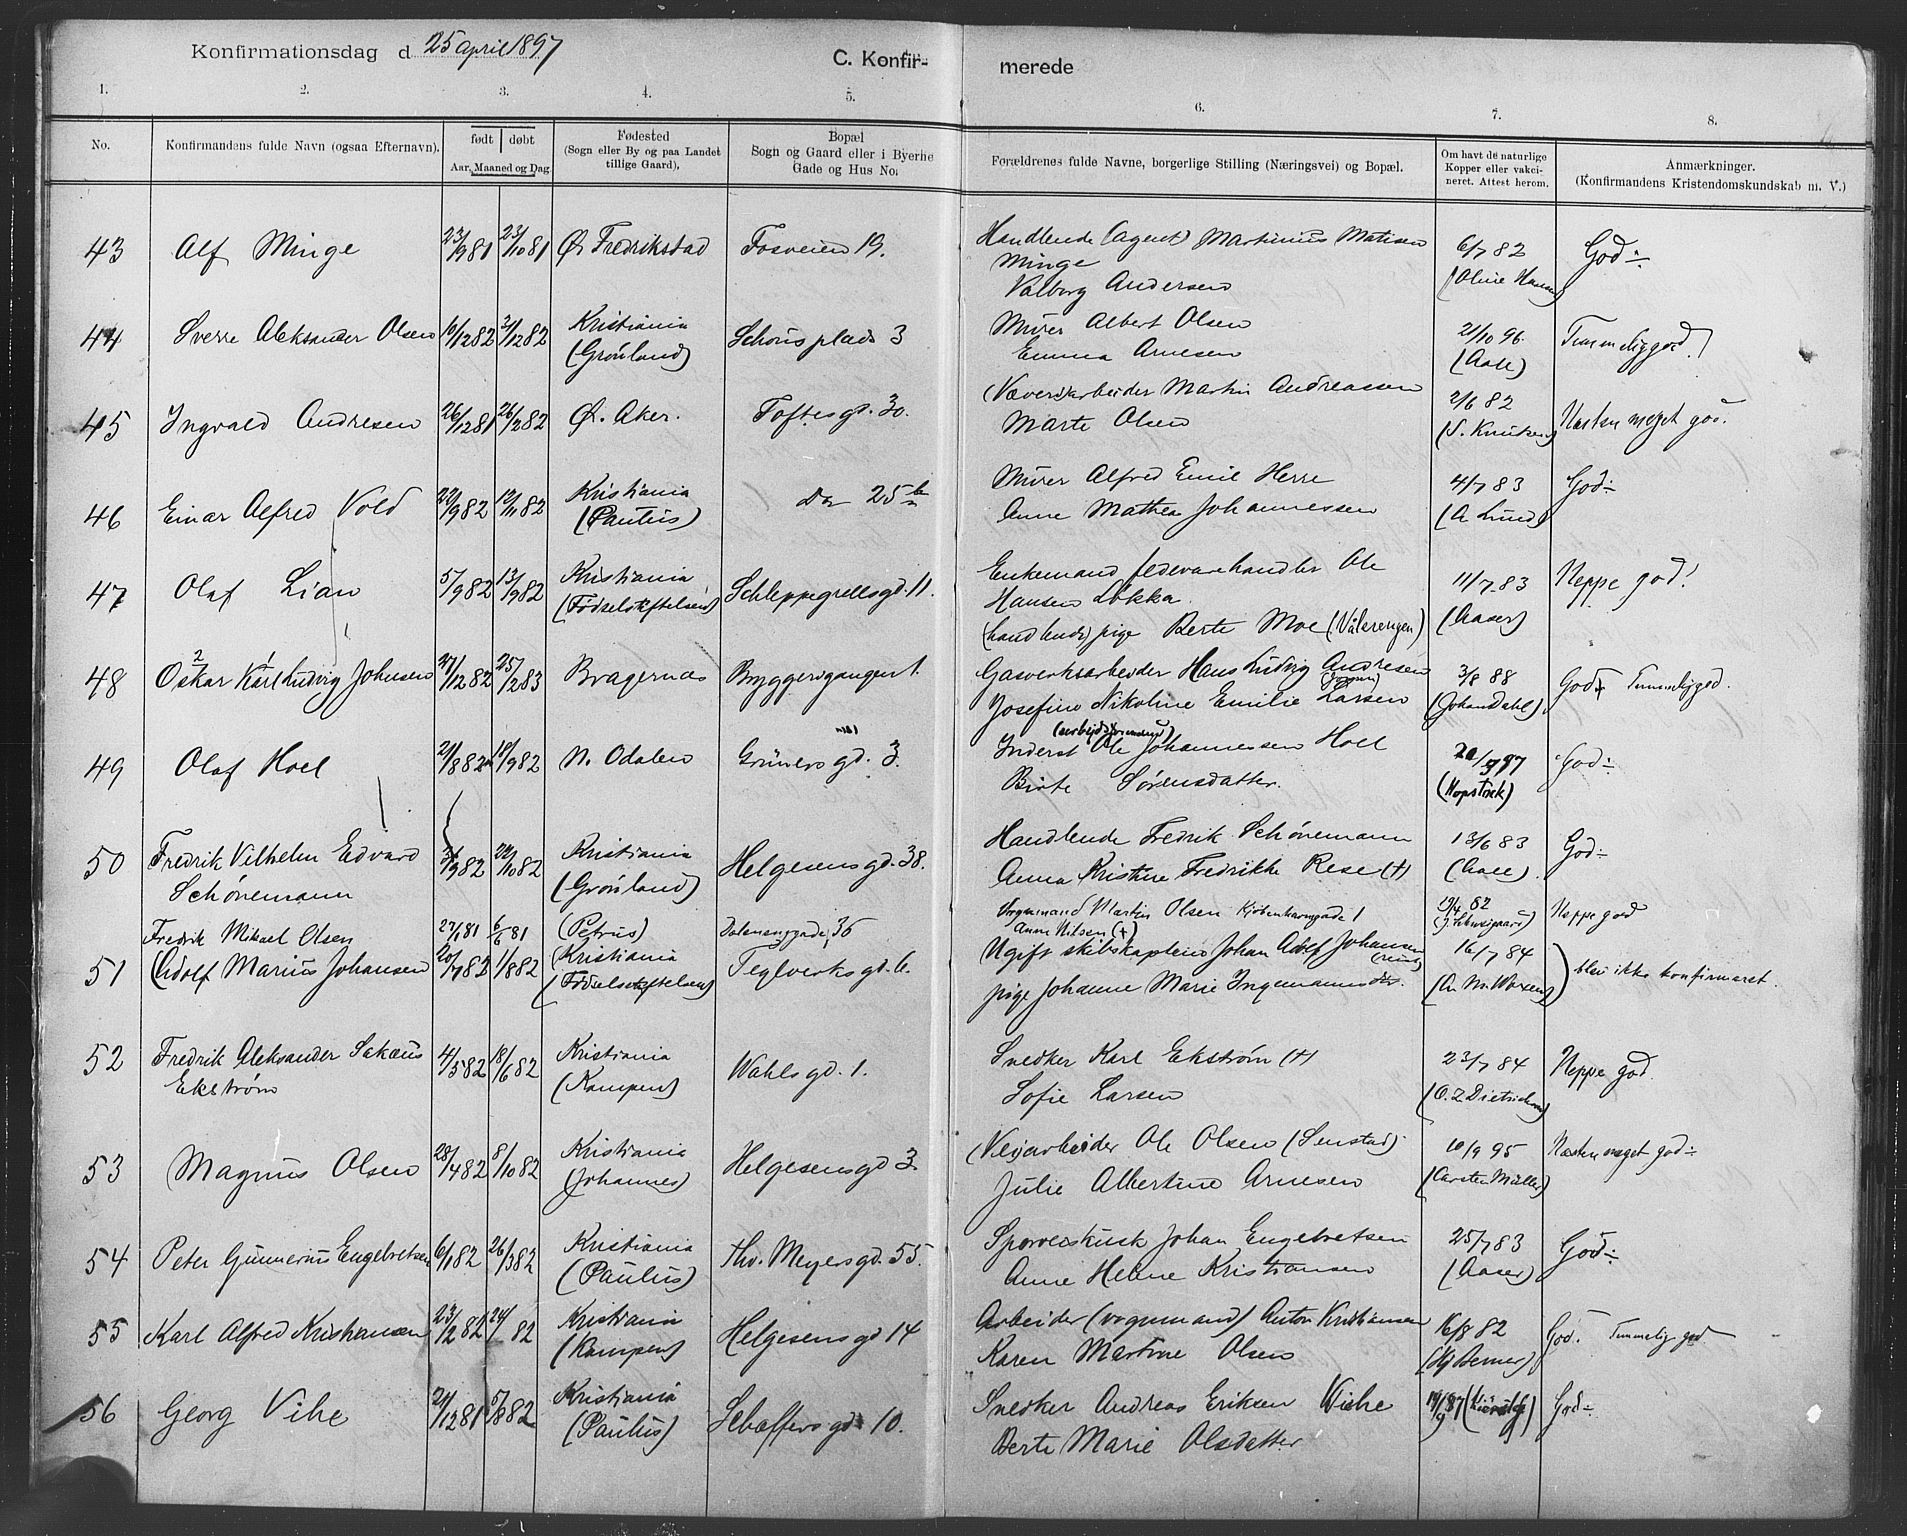 Konfirmationsdag d. 25 april 1897
C. Konfir- merede
1. 2. 3. 4. 5. 6. 7. 8.
No.
Konfirmandens fulde Navn (ogsaa Efternavn).
født døbt
Aar, Maaned og Dag
Fødested
(Sogn eller By og paa Landet
tillige Gaard),
Bopæl
Sogn og Gaard eller i Byerne
Gade og Hus No.
Forældrenes fulde Navne, borgerlige Stilling (Næringsvei) og Bopæl.
Om havt de naturlige
Kopper eller vakci-
neret. Attest herom.
Anmærkninger.
(Konfirmandens Kristendomskundskab m. V.)
43 Alf Minge 23/9 81 23/10 81 Ø. Fredrikstad Fosveien 19. Handlende (agent) Martinius Matisen
Minge
Valborg Andersen
6/7 82
(Oline Hansen)
God÷
44 Sverre Aleksander Olsen 16/12 82 31/12 82 Kristiania
(Grønland)
Schous plads 3
Murer Albert Olsen
Emma Arnesen
21/10 96.
(Aall)
Temmelig god.
45 Ingvald Andresen 26/12 81 26/2 82 Ø. Aker. Toftesgd. 30.
(Væveri)arbeider Martin Andreassen
Marte Olsen
2/6 82
(S. Knutsen)
Næsten meget god.
46 Einar Alfred Vold 22/9 82 12/11 82 Kristiania
(Paulus)
Do 25 b
Murer Alfred Emil Herre
Anne Mathea Johannessen
4/7 83
(A Lund)
God÷
47 Olaf Lian 5/9 82 13/9 82 Kristiania
(Fødselsstiftelsen)
Schleppegrellsgd. 11.
Enkemand fedevarehandler Ole
Hansen Løkka
(handlende) pige Berte Moe (Vålerengen)
11/7 83
(Aaser)
Neppe god!
48 Oskar Karl Ludvig Johnsen 27/12 82 25/2 83 Bragernæs Bryggerigangen 1.
Gasverksarbeider Hans Ludvig Andresen
Josefine Nikoline Emilie Larsen
3/8 88
(Johan Dahl)
God+ Temmelig god.
49 Olaf Hoel 21/8 82 18/9 82 N. Odalen Grünersgd. 3.
(arbeidsformand)
Inderst Ole Johannessen Hoel
Birte Sørensdatter.
(Hopstock)
God÷
50 Fredrik Vilhelm Edvard
Schønemann
/9 82 22/10 82 Kristiania
(Grønland)
Helgesensgd. 38.
Handlende Fredrik Schønemann
Anna Kristine Fredrikke Rese (†)
13/6 83
(Aall)
God÷
Fredrik Mikael Olsen 27/1 81 6/6 81 (Petrus) Dalenenggade, 36 Vognmand Martin Olsen Kjøbenhavngade 1
Anne Nilsen (†)
19/4 82
Neppe god
51 (Adolf Marius Johansen 20/7 82 1/8 82 Kristiania
(Fødselsstiftelsen)
Teglverksgd. 6.
Ugift skibskaptein Johan Adolf Johansen
pige Johanne Marie Ingemannsdtr.
16/7 84
blev ikke konfirmeret.
52 Fredrik Aleksander Sakæus
Ekstrøm
4/5 82 18/6 82 Kristiania
(Kampen)
Wahlsgd. 1.
Snedker Karl Ekstrøm (†)
Sofie Larsen
23/7 84
(O. Z Dietrichson)
Neppe god.
53 Magnus Olsen 28/4 82 8/10 82 Kristiania
(Johannes)
Helgesensgd 3
(Veiarbeider Ole Olsen (Senstad)
Julie Albertine Arnesen
10/9 95
(Carsten Müller)
Næsten meget god÷
54 Peter Gunnerius Engebretsen 6/1 82 26/3 82 Kristiania
(Paulus)
Thv. Meyersgd. 55.
Sporveiskusk Johan Engebretsen
Anne Helene Kristiansen
25/7 83
(Aaser)
God÷
55 Karl Alfred Kristiansen 23/12 82 24/ 82 Kristiania
(Kampen)
Helgesensgd 14
Arbeider (vognmand) Anton Kristiansen
Karen Martine Olsen
16/8 82
(Hj Berner)
God. Temmelig god
56 Georg Vihe 21/12 81 5/8 82 Kristiania
(Paulus)
Schæffersgd 10.
Snedker Andreas Eriksen Wiehe
Berte Marie Olsdatter
19/9 87
God÷